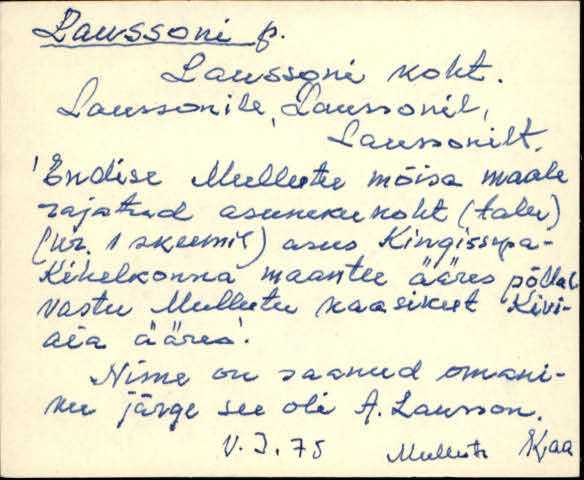 Laussoni p.
Laussoni koht.
Laussonile, Laussonil,
Laussonilt.
'Endise Mullutu mõisa maale
rajatud asunikukoht (talu)
(nr. 1 skeemil) asus Kingissepa-
Kihelkonna maantee ääres põllal
vastu Mullutu kaasikut Kivi-
aia ääres'.
Nime on saanud omani-
ku järge see oli A. Lausson.
V. I. 75 Mullutu Kaa